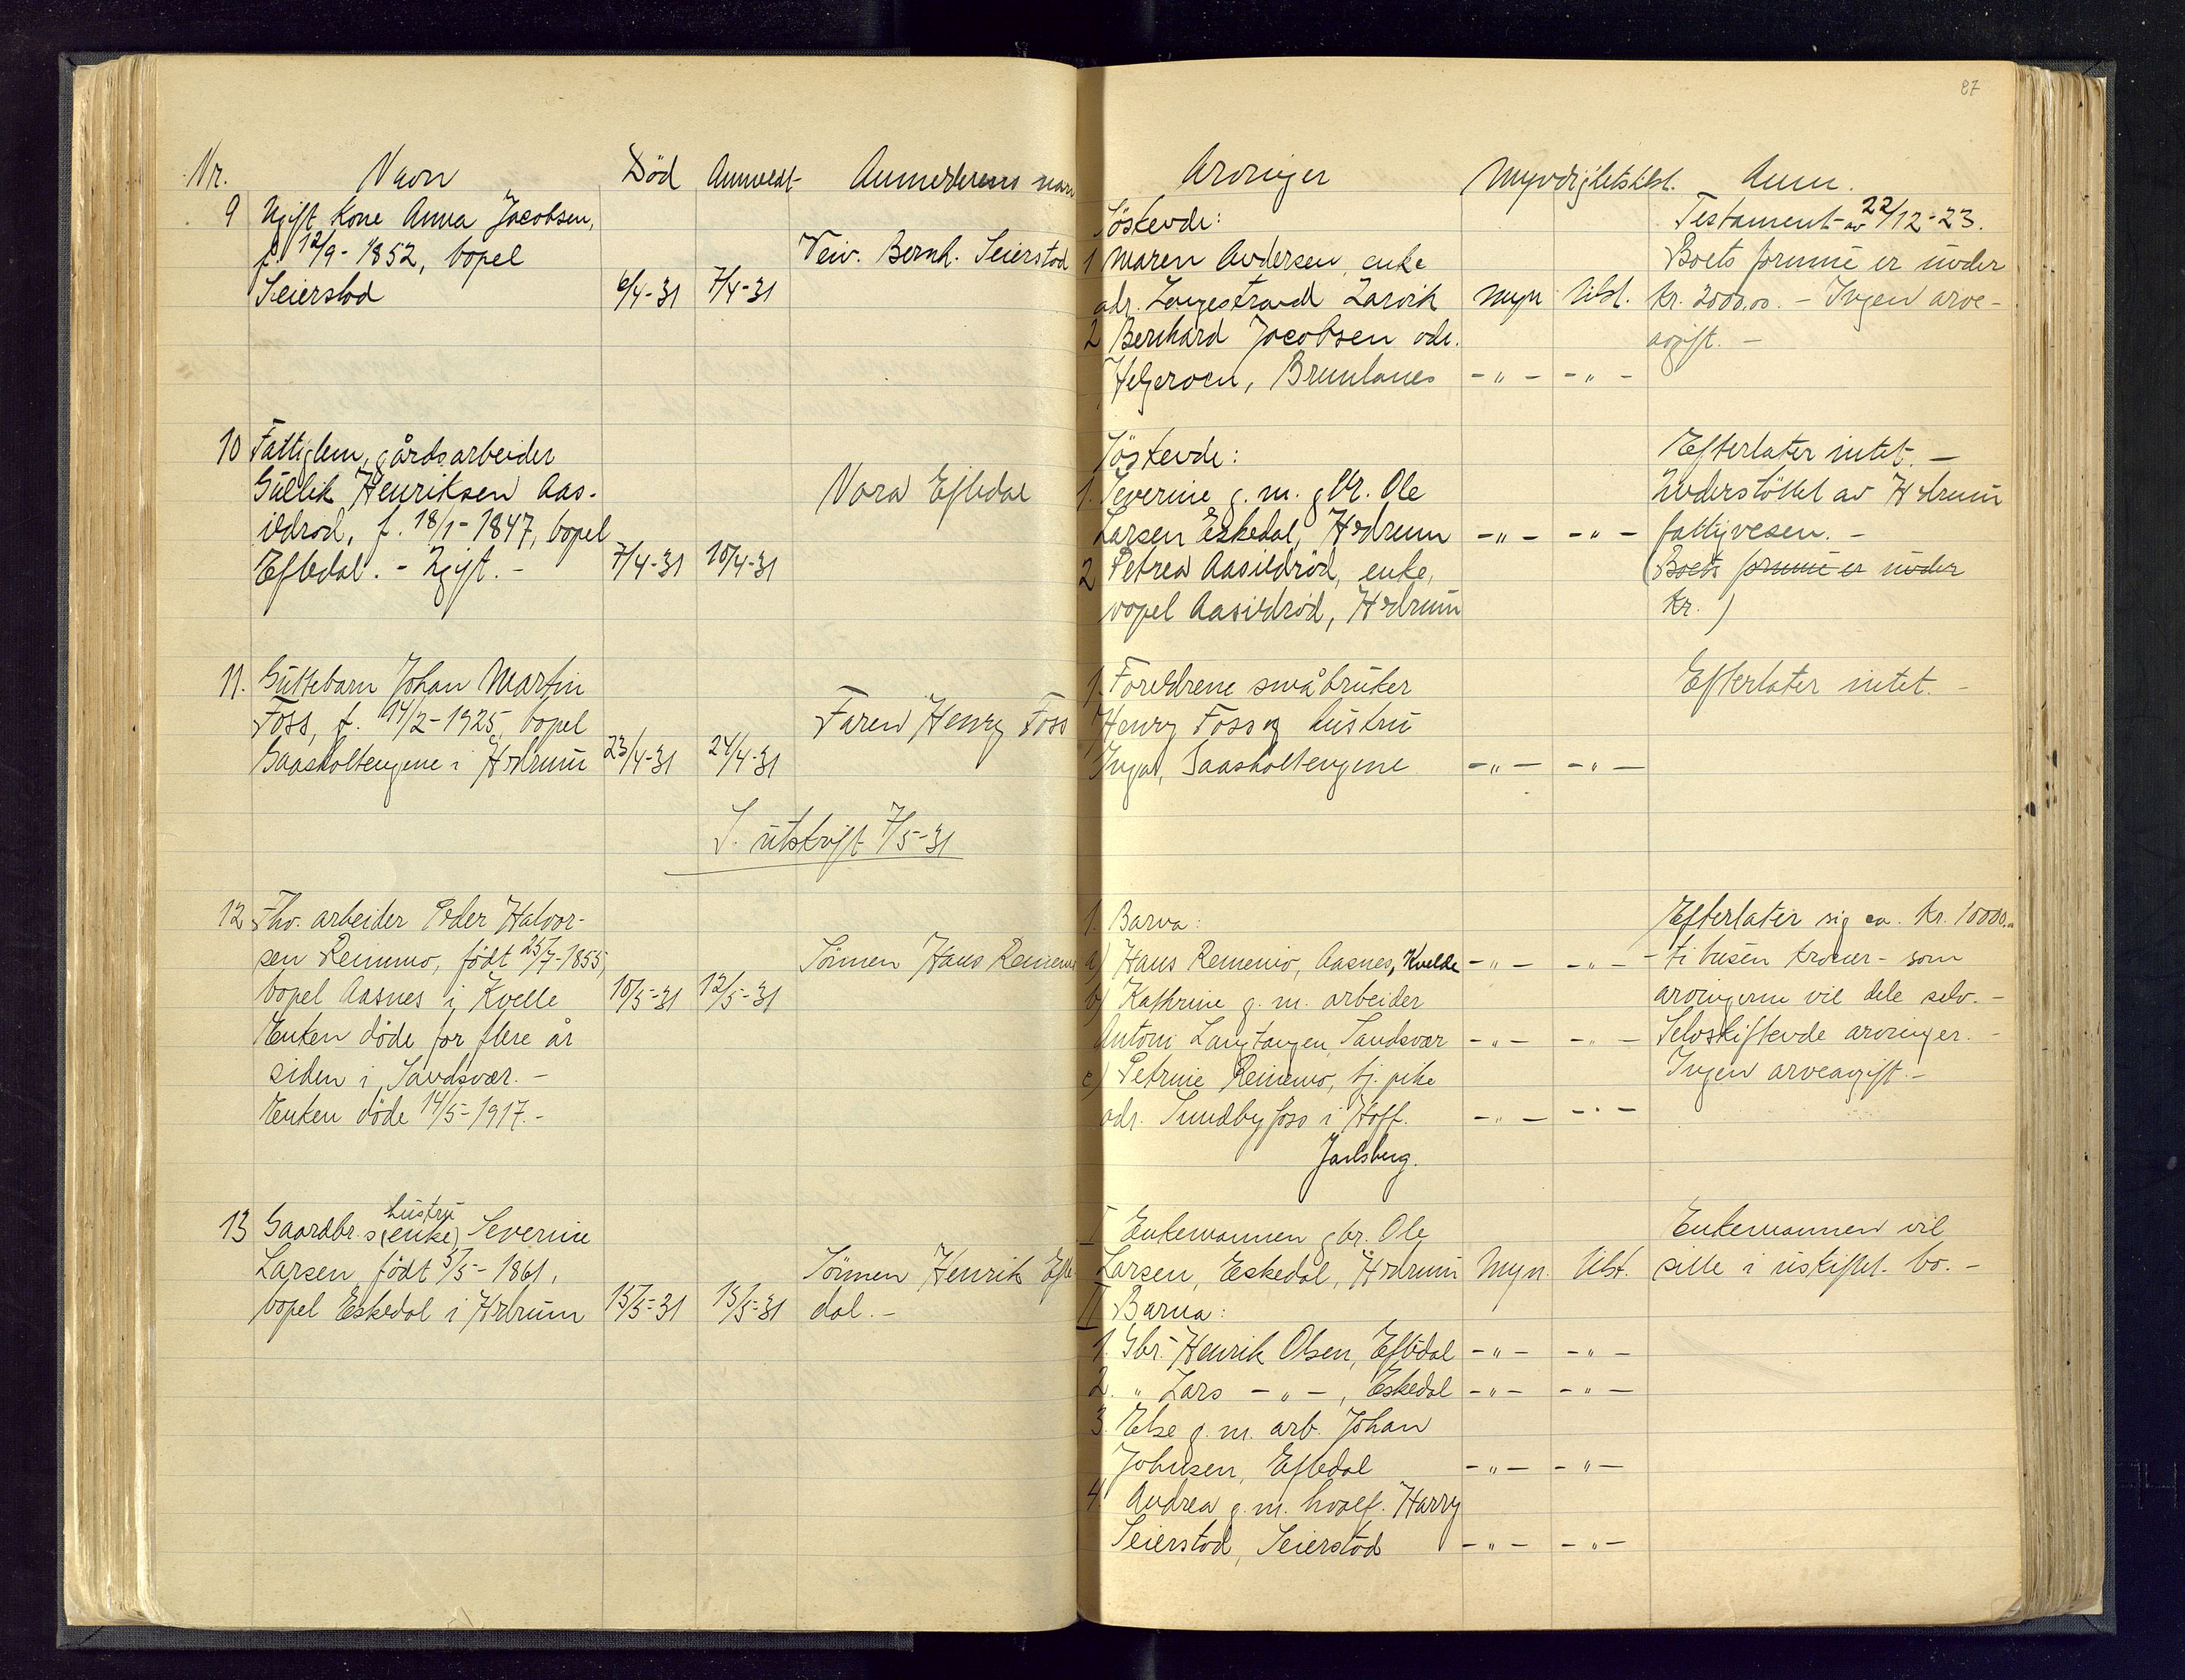 87
Nr. Navn Död Anmeldt Anmelderens navn
9 Ugift Kone Anna Jacobsen,
f. 12/9-1852, bopel
Seierstad 6/4-31 7/4-31
Veiv. Bernh. Seierstad
10 Fattiglem, gårdsarbeider
Gullik Henriksen Aas-
ildrød, f. 18/1-1847, bopel
Eftedal. - Ugift. - 7/4-31 10/4-31
Nora Eftedal
11. Guttebarn Johan Martin
Foss, f. 14/2-1925, bopel
Gaasholtengene i Hedrum 23/4-31 24/4-31
Faren Henry Foss
S. utskrift 7/5-31
12 Fhv. arbeider Peder Halvor-
sen Reinemo, født 25/7-1855,
bopel Aasnes i Kvelle 10/5-31 12/5-31
Sönnen Hans Reinemo
Enken döde for flere år
siden i Sandsvær. -
Enken döde 14/5-1917. -
hustru
13 Gaardbr.s (enke) Severine
Larsen, født 5/5-1861,
bopel Eskedal i Hedrum 15/5-31 15/5-31
Sönnen Henrik Efte
dal. -
Arvinger Myndighetstilst. Anm.
Söskende:
1 Maren Andersen, enke
adr. Langestrand Larvik Myn Tilst.
2 Bernhard Jacobsen adr.
Helgeroen, Brunlanes -"- -"-
Testament av 22/12-23.
Boets formue er under
kr. 2000.00. - Ingen arve-
avgift. -
Söskende:
1. Severine g. m. gbr. Ole
Larsen Eskedal, Hedrum -"- -"-
2 Petrea Aasildröd, enke,
bopel Aasildröd, Hedrum
Efterlater intet. -
Understöttet av Hedrum
fattigvesen. -
(Boets formue er under
kr. )
1. Foreldrene småbruker
Henry Foss og hustru
Inga, Gaasholtengene -"- -"-
Efterlater intet. -
1. Barna:
a) Hans Reinemo, Aasnes, Kvelde -"- -"-
b) Kathrine g. m. arbeider
Antoni Langtangen, Sandsvær -"- -"-
c) Petrine Reinemo, tj. pike
adr. Sundbyfoss i Hoff. -"- -"-
Jarlsberg.
Efterlater sig ca. kr. 10000.00
- ti tusen kroner - som
arvingerne vil dele selv. -
Selvskiftende arvinger. -
Ingen arveavgift. -
I Enkemannen gbr. Ole
Larsen, Eskedal, Hedrum Myn. Tilst.
II Barna:
1. Gbr. Henrik Olsen, Eftedal -"- -"-
2. " Lars -"-, Eskedal -"- -"-
3. Else g. m. arb. Johan
Johnsen, Eftedal -"- -"-
4 Andrea g. m. hvalf. Harry
Seierstad, Seierstad -"- -"-
Enkemannen vil
sitte i uskiftet bo. -